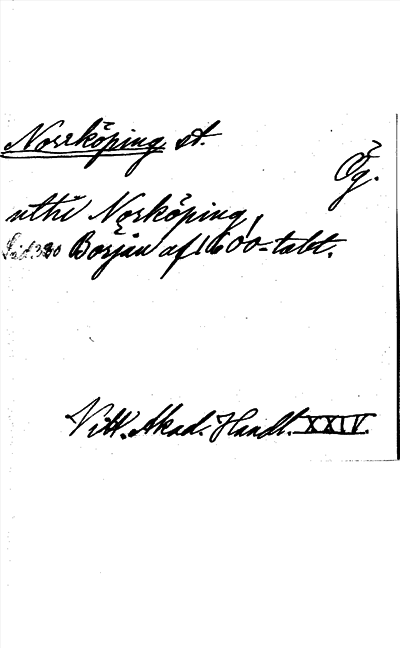 Norrköping st.
Ög.
uthi Norköping,
Sid. 380 Början af 1600-talet.
Vitt. Akad. Handl. XXIV.